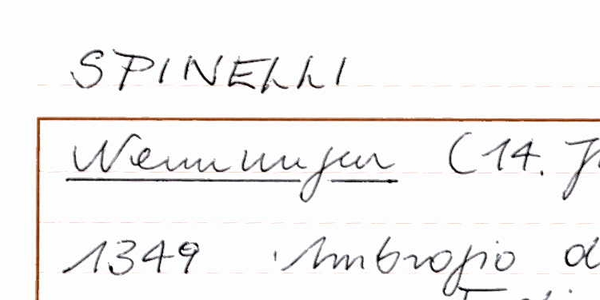 SPINELLI
Nennungen (14. J
1349 Ambrogio d